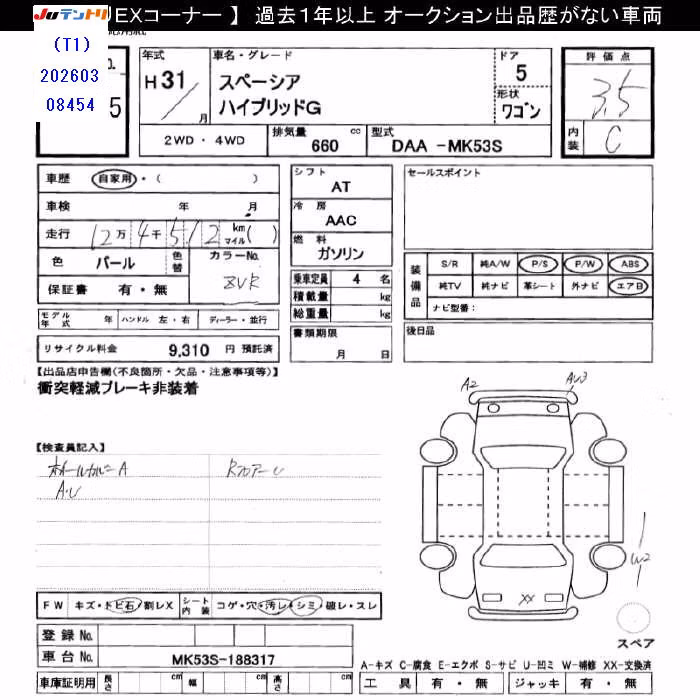 Juテントリ EXコーナー 】 過去1年以上 オークション出品歴がない車両
(T1)
202603
08454
5
年式
H 31 / 月
車名・グレード
スペーシア
ハイブリッドG
ドア
5
形状
ワゴン
評価点
3.5
内装
C
2WD ・ 4WD
排気量 660 cc
型式 DAA -MK53S
車歴 自家用・( )
車検 年 月
走行 12万 4千 512 km マイル ( )
色 パール
色替
カラーNo.
ZVR
保証書 有・無
モデル年式 年 ハンドル 左・右 ディーラー・並行
リサイクル料金 9,310 円 預託済
シフト
AT
冷房
AAC
燃料
ガソリン
乗車定員 4 名
積載量 kg
総重量 kg
書類期限
月 日
セールスポイント
装備品
S/R 純A/W P/S P/W ABS
純TV 純ナビ 革シート 外ナビ エアB
ナビ型番：
後日品
【出品店申告欄(不良箇所・欠品・注意事項等)】
衝突軽減ブレーキ非装着
【検査員記入】
ホイールカバーA
A.U
RフロアーU
A2
AU3
W2
XX
スペア
FW キズ・トビ石・割レX
シート内装 コゲ・穴・汚レ・シミ・破レ・スレ
登録 No.
車台 No. MK53S-188317
車庫証明用 長さ cm 幅 cm 高さ cm
A-キズ C-腐食 E-エクボ S-サビ U-凹ミ W-補修 XX-交換済
工具 有・無 ジャッキ 有・無